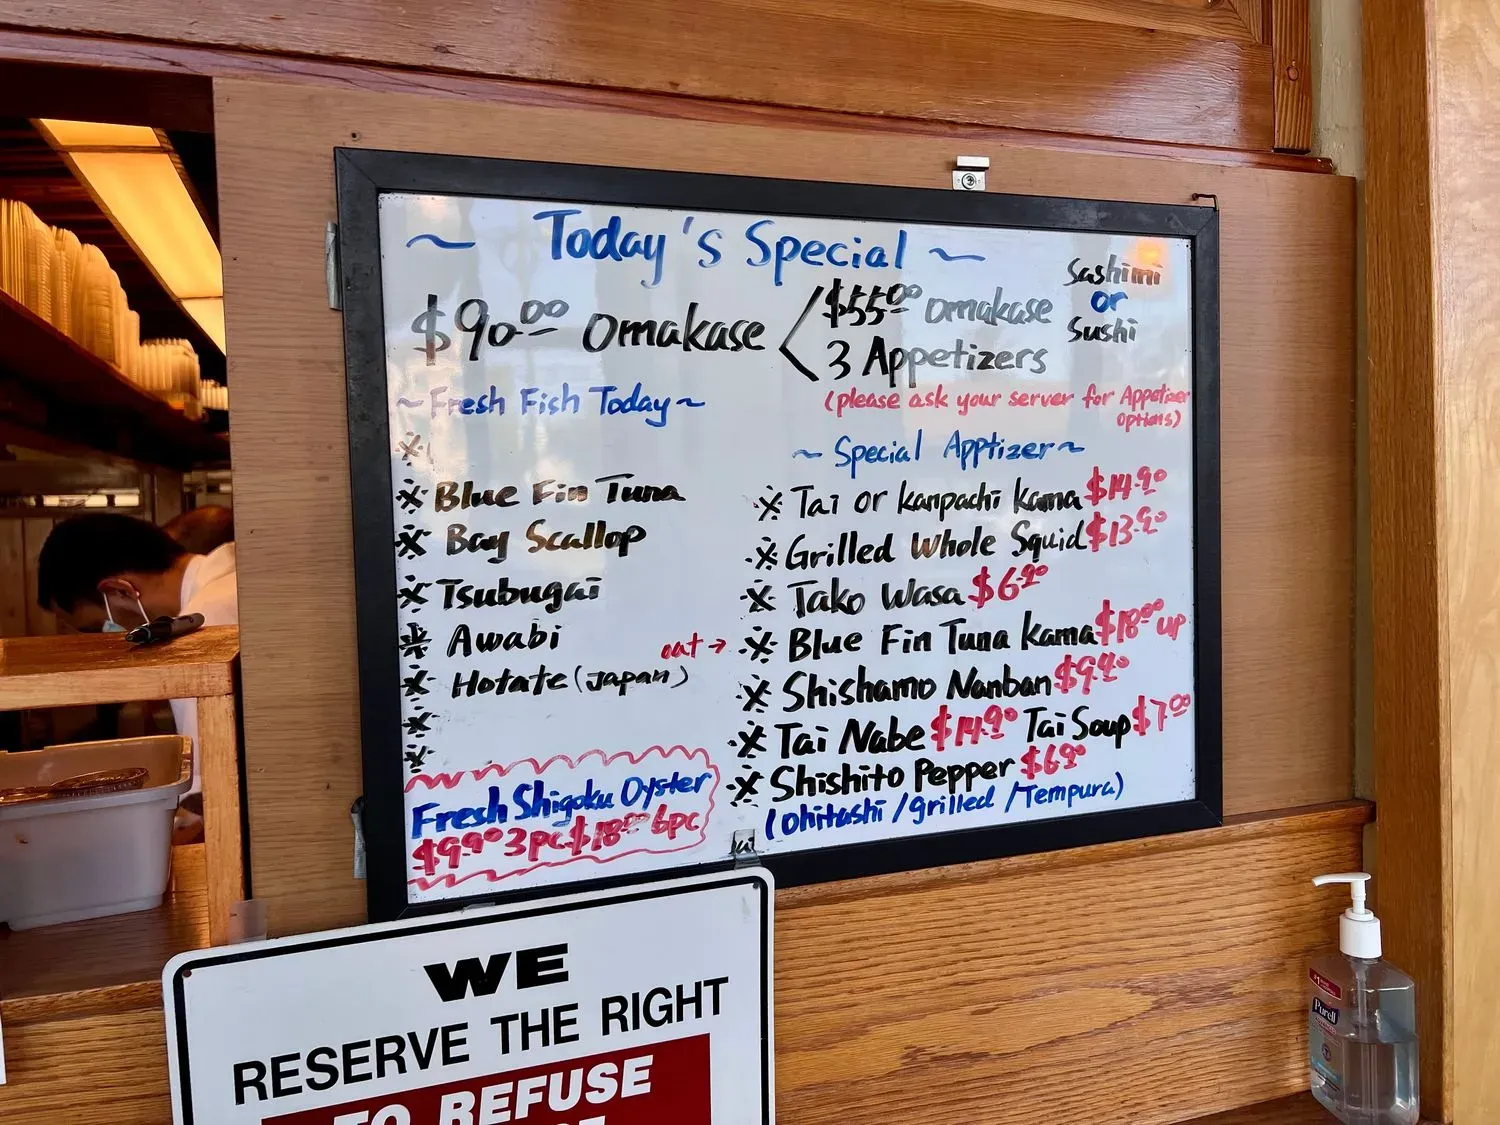 ~ Today's Special ~
$90.00 Omakase
$55.00 Omakase
3 Appetizers
Sashimi
or
Sushi
(please ask your server for Appetizer
options)
~Fresh Fish Today~
Blue Fin Tuna
Bay Scallop
Tsubugai
Awabi
Hotate (Japan)
Fresh Shigoku Oyster
$9.90 3pc $18.00 6pc
~ Special Apptizer ~
Tai or Kanpachi Kama $14.90
Grilled Whole Squid $13.90
Tako Wasa $6.90
out → Blue Fin Tuna Kama $18.00 up
Shishamo Nanban $9.90
Tai Nabe $14.90 Tai Soup $7.00
Shishito Pepper $6.90
(Ohitashi / grilled / Tempura)
WE
RESERVE THE RIGHT
TO REFUSE
Purell